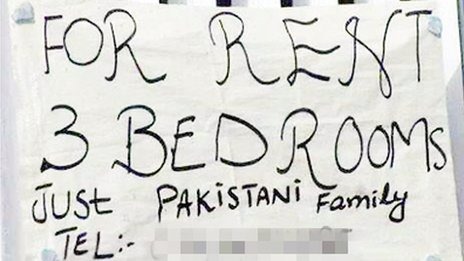 FOR RENT
3 BEDROOMS
JUST PAKISTANI Family
TEL:-